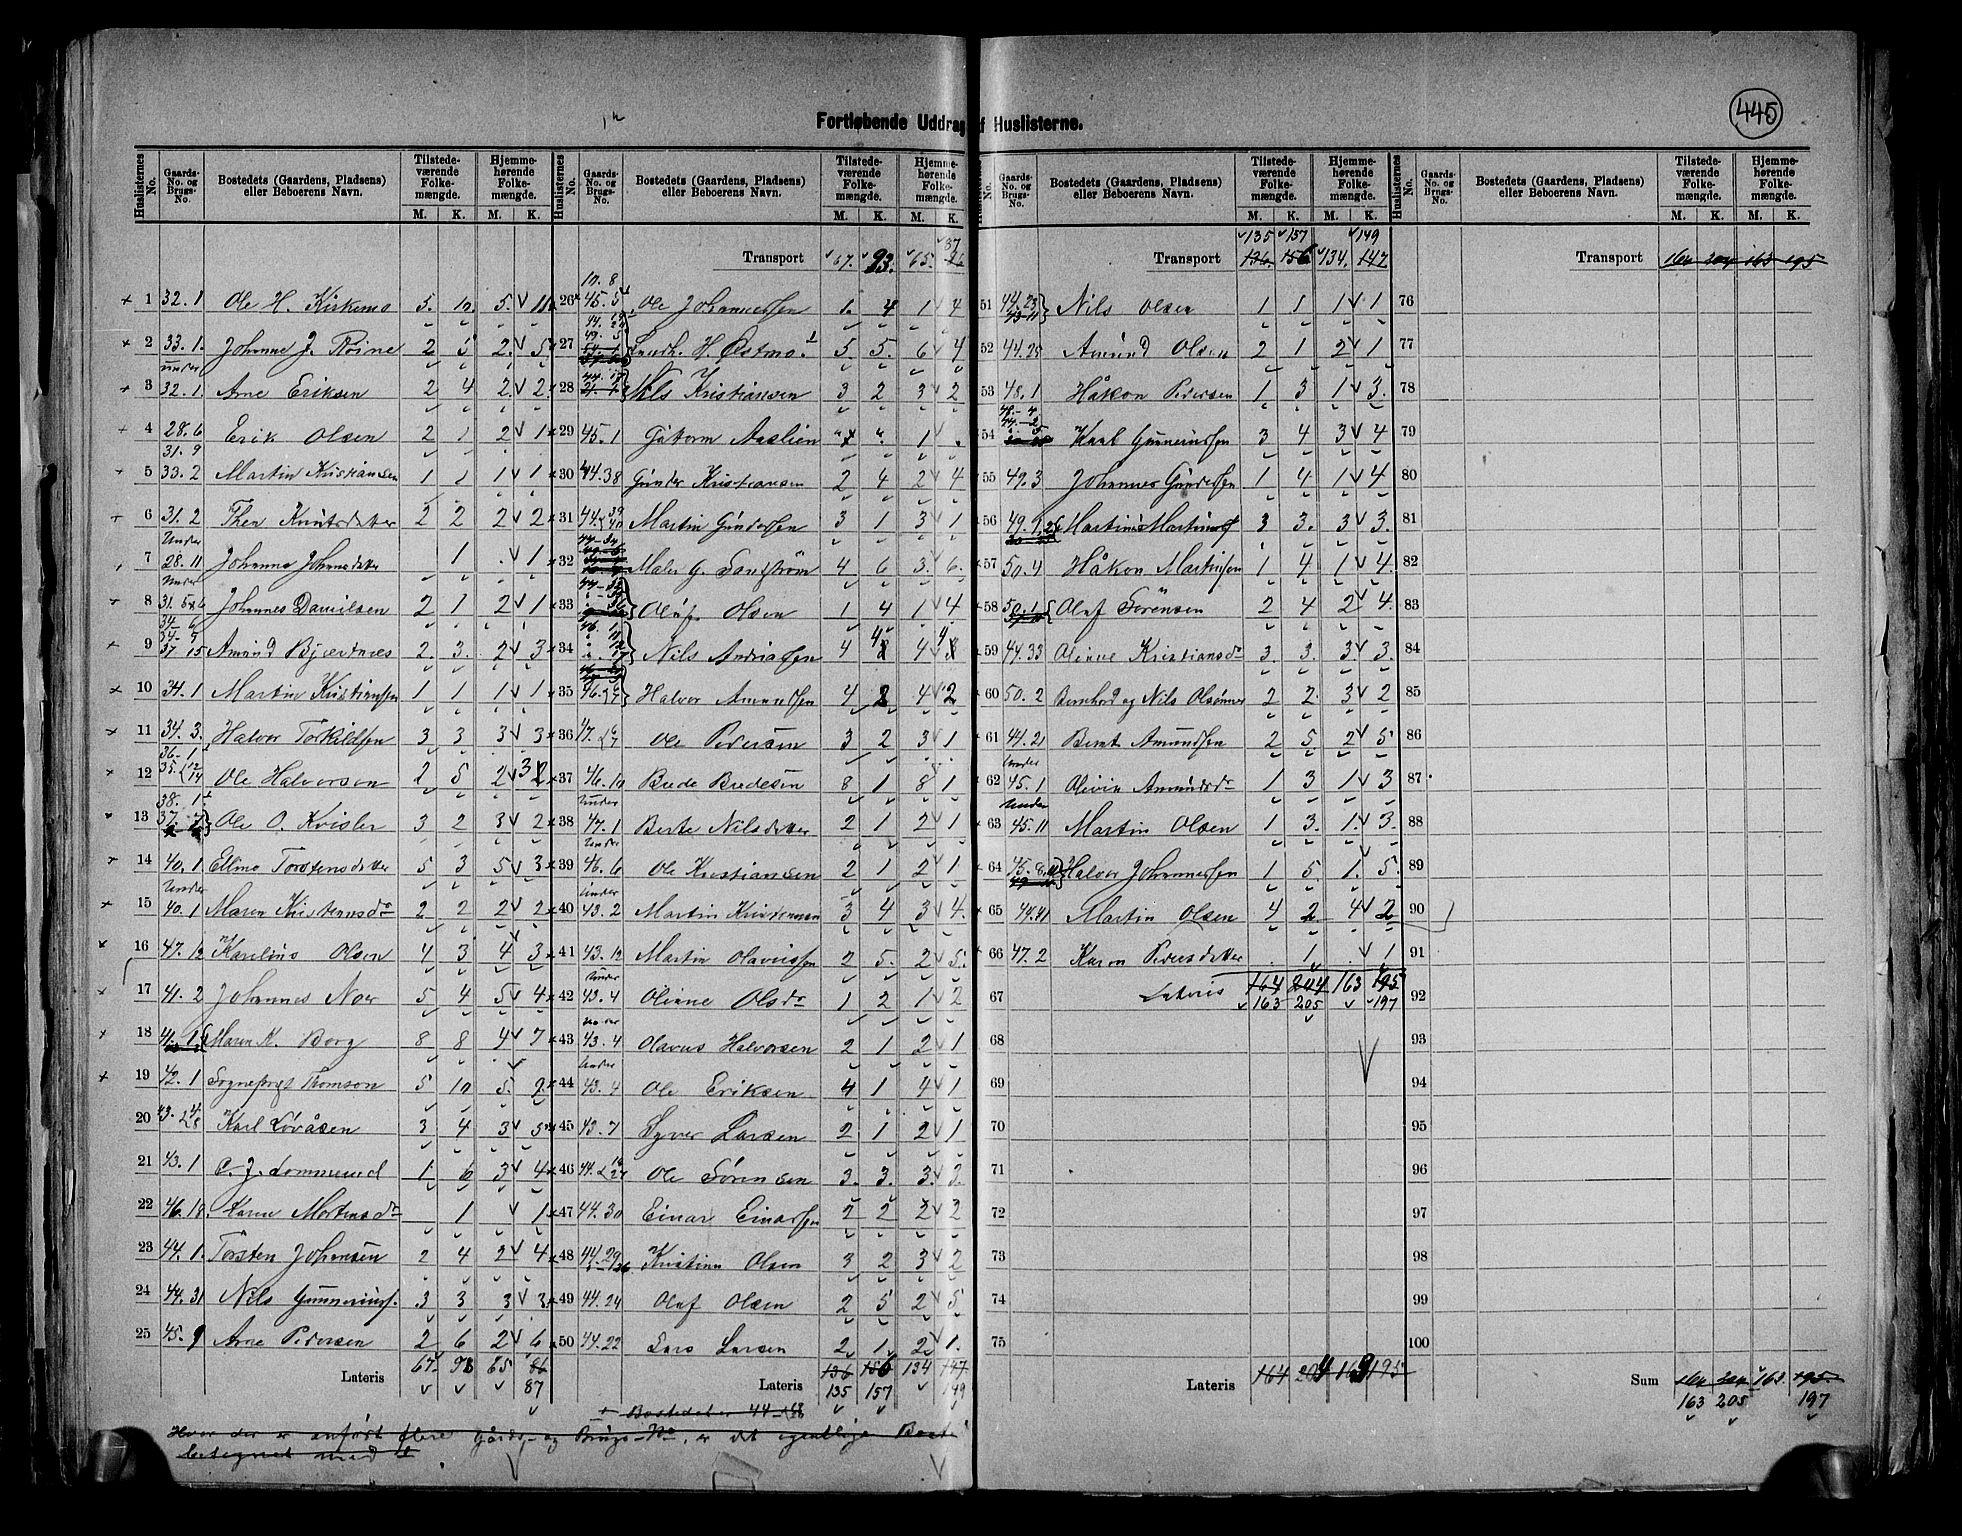 445
Fortløbende Uddrag af Huslisterne.
Huslisternes No. Gaards-No. og Brugs-No. Bostedets (Gaardens, Pladsens) eller Beboerens Navn. Tilstedeværende Folkemængde. M. K. Hjemmehørende Folkemængde. M. K.
1 32.1 Ole H. Kirkemo 5. 10. 5. 11
2 33.1. Johanne J. 2 5 2. 5
under
3 32.1 Arne Eriksen 2 4 2. 2
4 28.6 Erik Olsen 2 1 2 1
31.9
5 33.2 Martin Kristiansen 1 1 1 1
6 31.2 Thea Knutsdatter 2 2 2 2
Under
7 28.11 Johanne 1 . 1
Under
8 31. Johannes Danielsen 2 1 2 1
9 37 15 Amund Bjertnes 2. 3. 2 3
10 34.1 Martin Kristiansen 1 1 1 1
11 34.3. Halvor Torkildsen 3 3 3 3
36.1
12 35. 12 14 Ole Halvorsen 2 5 2 3
38.1
13 37.7 Ole O. Kvisler 3 2 3 2
14 40.1 Ellina Torstensdatter 5 3 5 3
Under
15 40.1 Maren Kristiansdr 2 2 2 2
16 47.12 Karelius Olsen 4 3 4 3
17 41.2 Johannes Noer 5 4 5 4
18 41.1 Maren K. Borg 8 8 4 7
19 42.1 Sogneprest Thomson 5 10 5. 9
20 43. Karl Løvåsen 3 4 3 5
21 43.1 C. J. Lommerud 1 6 3 4
22 46.18. Karen Mortensdr 1 1
23 44.1. Torsten Johansen 2 4 2 4
24 44.31 Nils Gunneriusf. 3 3 3 3
25 45.9 Arne Pedersen 2 6 2 6
Lateris 67. 93 65 86
87
Transport 67. 93. 65. 86
87
26 45.5 Ole Johannessen 1. 4 1 4
27 H. Østmo 5 5. 6 4
28 Nils Kristiansen 3 2 3 2
29 45.1 Gutorm Aaslien 1 .
30 44.38 Gunder Kristiansen 2 4 2 4
31 44. 39 40 Martin Gundersen 3 1 3 1
32 Maler G. Sandstrøm 4 6 3. 6.
33 Oluf Olsen 1 4 1 4
34 Nils Andreassen 4 4 4 4
35 46. Halvor Amundsen 4 2 4 2
36 47. 6 7 Ole Pedersen 3 2 3 1
37 46.10 Brede Bredesen 8 1 8 1
Under
38 47.1 Berte Nilsdatter 2 1 2 1
Under
39 46.6 Ole Kristiansen 2 1 2 1
Under
40 43.2 Martin Kristiansen 3 4 3 4.
41 43.12 Martin Olavessen 2 5. 2 5.
Under
42 43.4 Oliane Olsdr 1 2 1 2
Under
43 43.4 Olavus Halvorsen 2 1 2 1
Under
44 43.4 Ole Eriksen 4 1 4 1
45 43.7 Syver Larsen 2 1 2 1
46 44. Ole Sørensen 3. 3. 3. 3.
47 44.30 Einar Einarssen 2 2 2 2
48 44.29 Kristian Olsen 3 2 3 2
49 44.24 Olaf Olsen 2 5 2 5
50 44.22 Lars Larsen 2 1. 2 1.
Lateris 136 156 134 147
135 157 149
Bostedet er 44-
Hvor der er anført flere Gårds- og Brugs-No, er det egentlige Bosted
betegnet med
135 157 149
Transport 136. 156 134. 147
51 44.23 Nils Olsen 1 1 1 1
52 44.25 Amund Olsen 2 1 2 1
53 48.1 Håkon Pedersen 1 3 1 3.
54 Knut Gunneriussen 3 4 3 4
55 49.3 Johannes Gundersen 1 4 1 4
56 49. Martinus Martinsen 3 3. 3 3.
57 50.4 Håkon Martinsen 1 4 1 4.
58 50.1 Olaf Sørensen 2 4 2 4.
59 44.33 Oliane Kristiansdr 3. 3. 3 3.
60 50.2 Bernhard og Nils Olsønner 2 2. 3 2
61 44.21 Bernt Amundsen 2 5 2 5
Under
62 45.1 Olivia Amundsdr 1 3 1 3
Under
63 45.11 Martin Olsen 1 3. 1. 3.
64 45. Halvor Johannessen 1 5. 1. 5.
65 44.41 Martin Olsen 4 2 4 2
66 47.2 Karen Pedersdatter . 1 . 1
67 Lateris 164 204 163 195
163 205 197
68
69
70
71
72
73
74
75
Lateris 164 204 163 195
Transport 164 204 163 195
76
77
78
79
80
81
82
83
84
85
86
87
88
89
90
91
92
93
94
95
96
97
98
99
100
Sum 164 204 163 195.
163 205 197